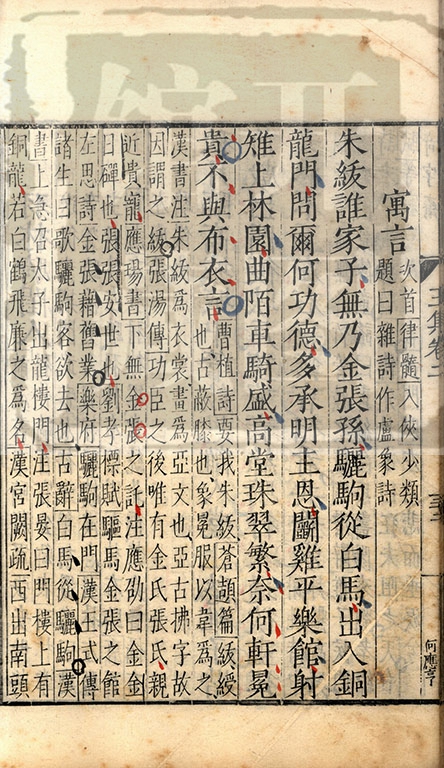 寓言
次首律髓入俠少類
題曰雜詩作盧象詩
朱紱誰家子無乃金張孫驪駒從白馬出入銅
龍門問爾何功德多承明主恩鬬雞平樂館射
雉上林園曲陌車騎盛高堂珠翠繁奈何軒冕
貴不與布衣言
曹植詩要我朱紱蒼頡篇紱綬
也古蔽膝也象冕服以韋為之
漢書注朱紱為衣裳畫為亞文也亞古拂字故
因謂之紱張湯傳功臣之後唯有金氏張氏親
近貴寵應瑒書下無金張之託注應劭曰金金
日磾也張張安世也劉孝標賦驅馬金張之館
左思詩金張藉舊業樂府驪駒在門漢王式傳
諸生曰歌驪駒客欲去也古辭白馬從驪駒漢
書上急召太子出龍樓門注張晏曰門樓上有
銅龍若白鶴飛廉之為名漢宮闕疏西出南頭
何應亨